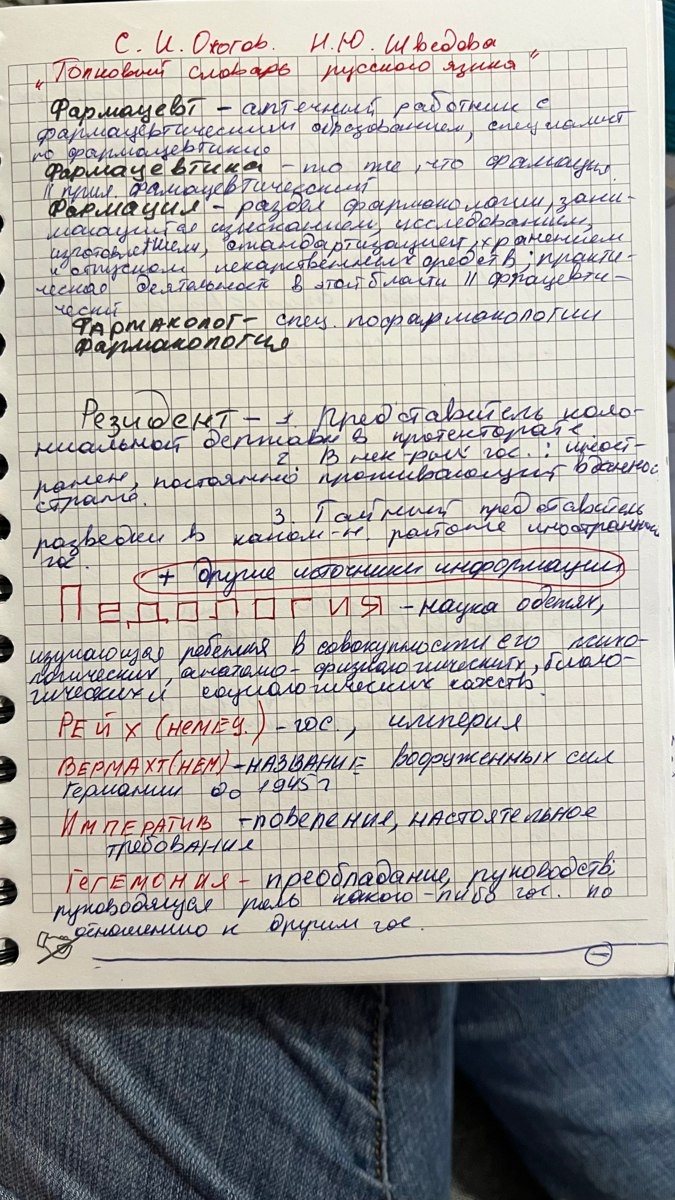 С. И. Ожогов. Н.Ю. Шведова
"Толковый словарь русского языка"
Фармацевт – аптечный работник с
фармацевтическим образованием, специалист
по фармацевтике
Фармацевтика – то же, что фамация.
|| прил. фамацевтический
Фармация – раздел фармакологии, зани-
мающийся изысканием, исследованием,
изготовлением, стандартизацией, хранением
и отпуском лекарственных средств; практи-
ческая деятельность в этой области ||
ческий
Фармаколог – спец. по фармакологии
фармакология
Резидент – 1. Представитель коло-
ниальной державы в протекторате
2. В нек-рых гос.: иност-
ранец, постоянно проживающий в данной
стране.
3. Тайный представитель
разведки в каком-н районе иностранный
гос.
+ другие источники информации
Педология – наука о детях,
изучающая ребенка в совокупности его психо-
логических, анатомо-физиологических, биоло-
гических и социологических качеств.
Рейх (немец.) – гос, империя
Вермахт (нем) – название вооруженных сил
Германии до 1945 г
Императив – повеление, настоятельное
требование
Гегемония – преобладание, руководств.
руководящая роль какого-либо гос. по
отношению к другим гос.